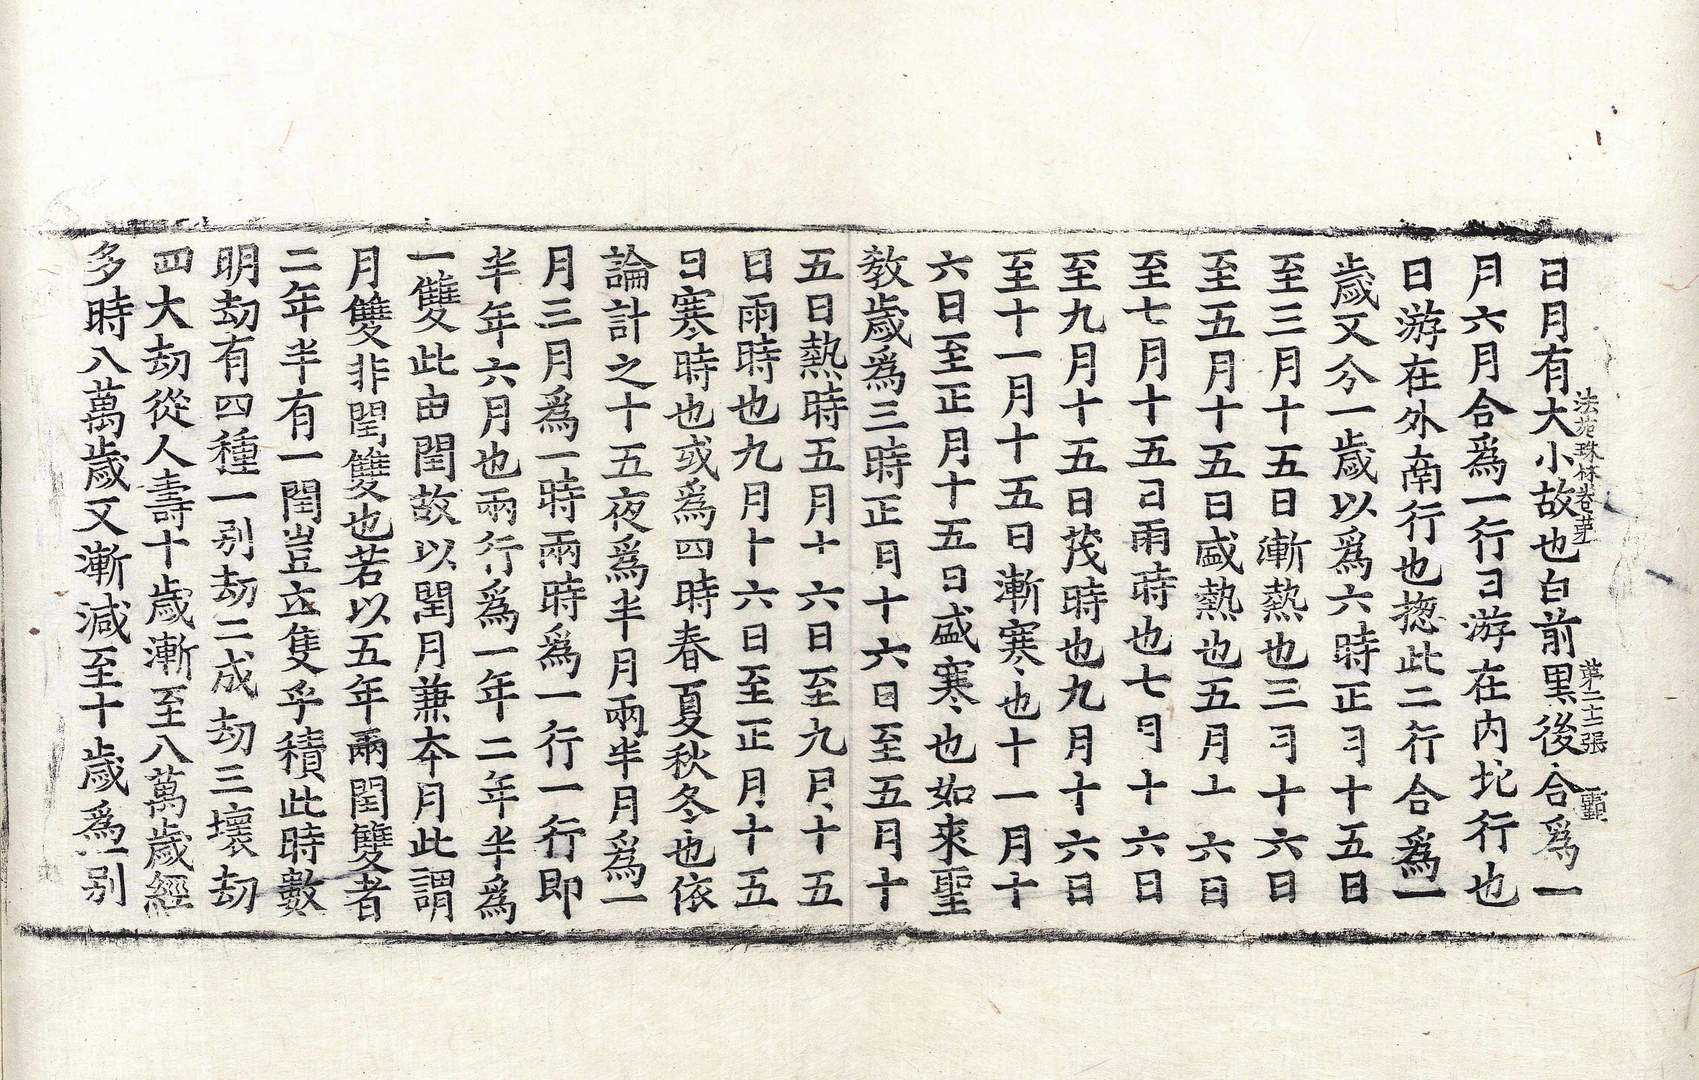 法苑珠林卷苐一　苐二十二張　覇
日月有大小故也白前黒後合爲一
月六月合爲一行日游在内北行也
日游在外南行也揔此二行合爲一
歲又分一歲以爲六時正月十五日
至三月十五日漸熱也三月十六日
至五月十五日盛熱也五月十六日
至七月十五日雨時也七月十六日
至九月十五日茂時也九月十六日
至十一月十五日漸寒也十一月十
六日至正月十五日盛寒也如來聖
教歲爲三時正月十六日至五月十
五日熱時五月十六日至九月十五
日雨時也九月十六日至正月十五
日寒時也或爲四時春夏秋冬也依
論計之十五夜爲半月兩半月爲一
月三月爲一時兩時爲一行一行即
半年六月也兩行爲一年二年半爲
一雙此由閏故以閏月兼夲月此謂
月雙非閏雙也若以五年兩閏雙者
二年半有一閏豈立隻乎積此時數
明劫有四種一别劫二成劫三壞劫
四大劫從人壽十歲漸至八萬歲經
多時八萬歲又漸減至十歲爲一别